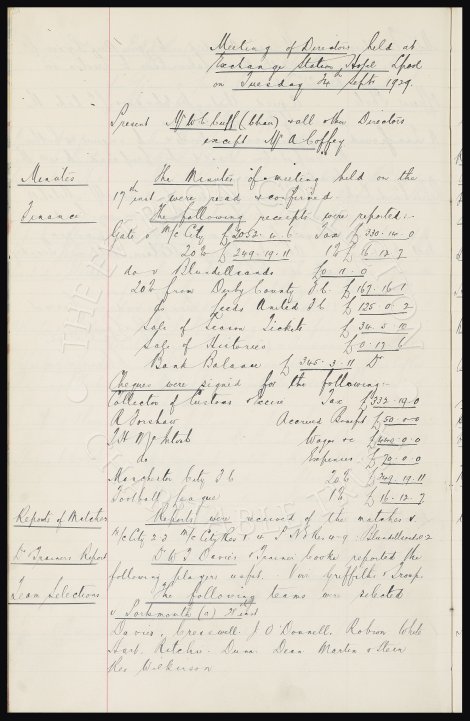 Meeting of Directors held at
Exchange Station Hotel Lpool
on Tuesday 24th Septr 1929.
Present Mr W C Cuff (Chair) & all other Directors
except Mr A Coffey
Minutes
The Minutes of a meeting held on the
17th inst were read & confirmed.
Finance
The following receipts were reported:-
Gate v McCity £2052.4.6 Tax £330.14.0
20% £249.19.11 1% £16.12.7
do v Blundellsands £0.11.0
20% from Derby County F.C. £167.16.1
Do Leeds United F.C £125.0.2
Sale of Season Tickets £34.5.10
Sale of Histories £0.17.6
Bank Balance £345.3.11 Dr
Cheques were signed for the following:-
Collector of Customs & Excise Tax £332.19.0
AOrmshaw Accrued Benefit £50.0.0
T.H. McIntosh Wages &c £440.0.0
do Expenses £70.0.0
Manchester City F.C 20% £249.19.11
Football League 1% £16.12.7
Reports of Matches
Reports were received of the matches v
McCity 2.3 McCity Res
Blundellsands
Dr & Trainers Report
Dr W J Davies & Trainer Cooke reported the
following players unfit. Virr Griffiths & Troup.
Team Selections
The following teams were selected
v Portsmouth (a) 28 inst
Davies. Cresswell. J O'Donnell. Robson White
Hart. Ritchie. Dunn. Dean Martin & Stein
Res Wilkinson